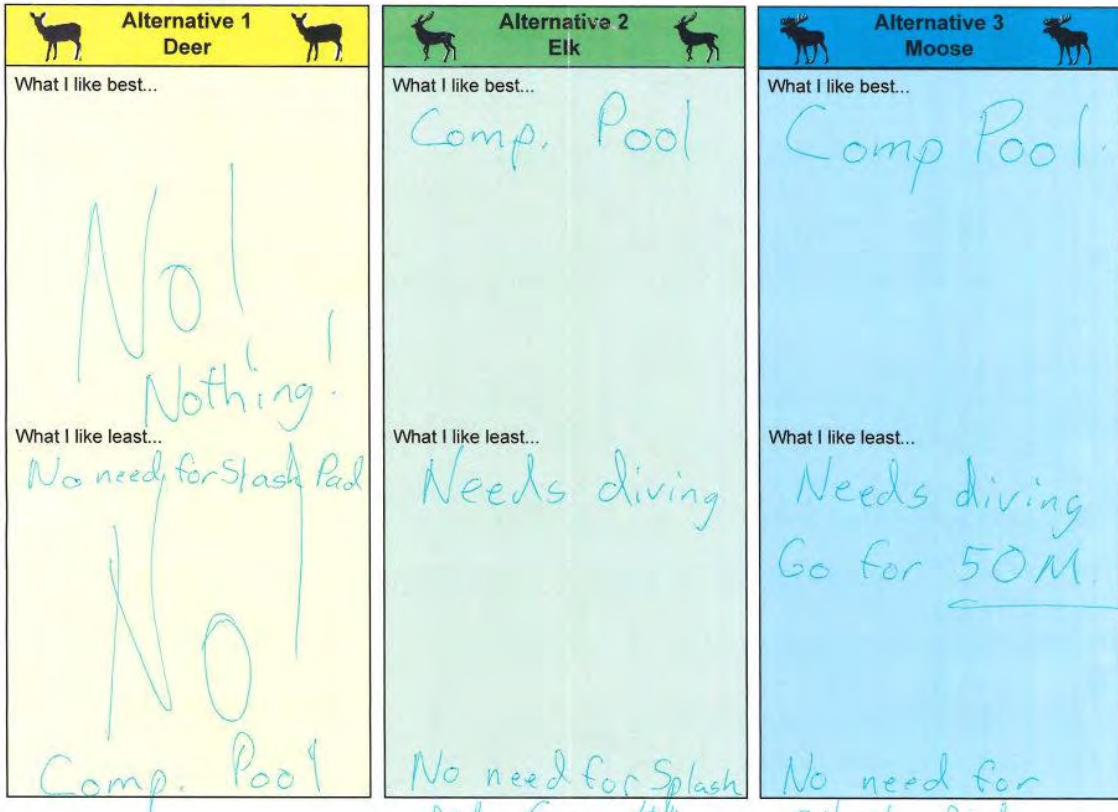 Alternative 1
Deer
What I like best...
No!
Nothing!
What I like least...
No need for Splash Pad
No!
Comp. Pool
Alternative 2
Elk
What I like best...
Comp. Pool
What I like least...
Needs diving
No need for Splash
Alternative 3
Moose
What I like best...
Comp Pool.
What I like least...
Needs diving
Go for 50M.
No need for